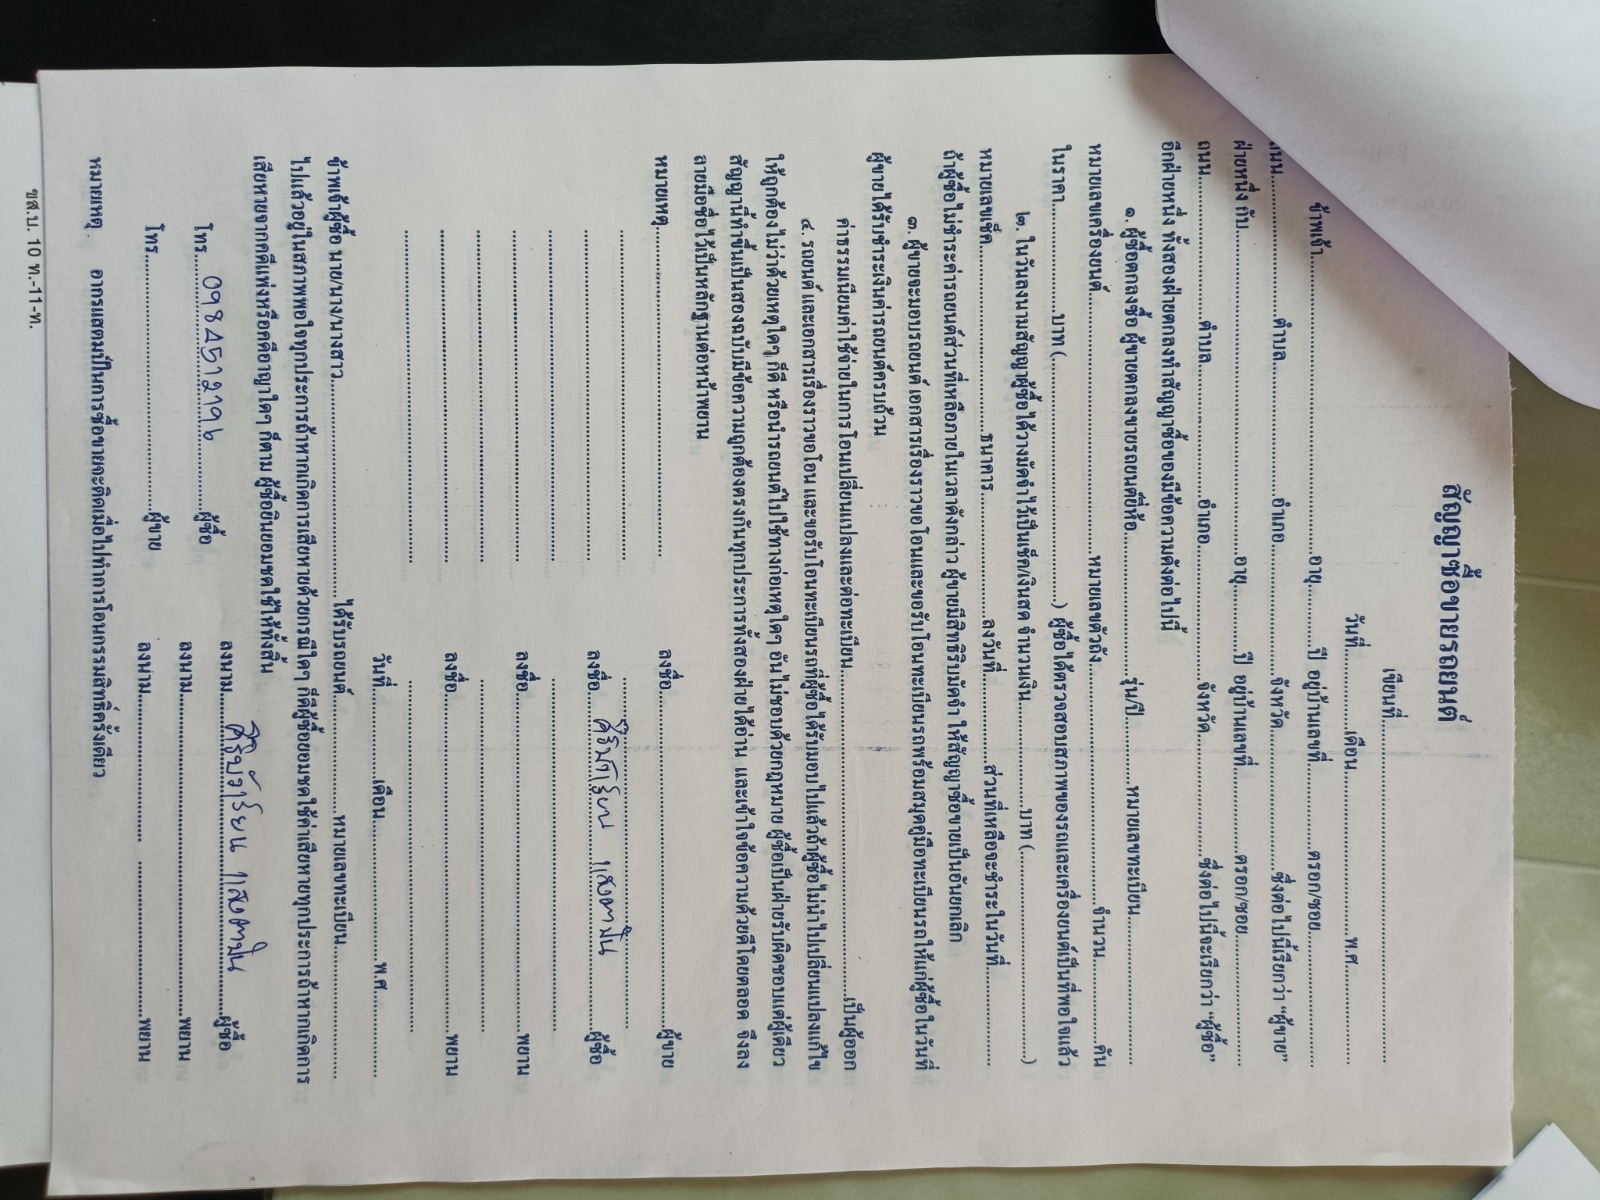 สัญญาซื้อขายรถยนต์
เขียนที่........................................
วันที่..........เดือน....................พ.ศ.............
ข้าพเจ้า........................................อายุ..........ปี อยู่บ้านเลขที่..........ตรอก/ซอย....................
ถนน....................ตำบล....................อำเภอ....................จังหวัด....................ซึ่งต่อไปนี้เรียกว่า "ผู้ขาย"
ฝ่ายหนึ่ง กับ........................................อายุ..........ปี อยู่บ้านเลขที่..........ตรอก/ซอย....................
ถนน....................ตำบล....................อำเภอ....................จังหวัด....................ซึ่งต่อไปนี้จะเรียกว่า "ผู้ซื้อ"
อีกฝ่ายหนึ่ง ทั้งสองฝ่ายตกลงทำสัญญาซื้อของมีข้อความดังต่อไปนี้
๑. ผู้ซื้อตกลงซื้อ ผู้ขายตกลงขายรถยนต์ยี่ห้อ....................รุ่น/ปี..........หมายเลขทะเบียน....................
หมายเลขเครื่องยนต์..............................หมายเลขตัวถัง..............................จำนวน..........คัน
ในราคา....................บาท (..............................) ผู้ซื้อได้ตรวจสอบสภาพของรถและเครื่องยนต์เป็นที่พอใจแล้ว
๒. ในวันลงนามสัญญาผู้ซื้อ ได้วางมัดจำไว้เป็นเช็ค/เงินสด จำนวนเงิน....................บาท (..............................)
หมายเลขเช็ค....................ธนาคาร....................ลงวันที่....................ส่วนที่เหลือจะชำระในวันที่....................
ถ้าผู้ซื้อ ไม่ชำระค่ารถยนต์ส่วนที่เหลือภายในเวลาดังกล่าว ผู้ขายมีสิทธิริบมัดจำ ให้สัญญาซื้อขายเป็นอันยกเลิก
๓. ผู้ขายจะมอบรถยนต์ เอกสารเรื่องราวขอโอนและขอรับโอนทะเบียนรถพร้อมสมุดคู่มือทะเบียนรถให้แก่ผู้ซื้อ ในวันที่
ผู้ขายได้รับชำระเงินค่ารถยนต์ครบถ้วน
ค่าธรรมเนียมค่าใช้จ่ายในการโอนเปลี่ยนแปลงและต่อทะเบียน........................................เป็นผู้ออก
๔. รถยนต์ และเอกสารเรื่องราวขอโอน และขอรับโอนทะเบียนรถที่ผู้ซื้อ ได้รับมอบไปแล้วถ้าผู้ซื้อ ไม่นำไปเปลี่ยนแปลงแก้ไข
ให้ถูกต้องไม่ว่าด้วยเหตุใดๆ ก็ดี หรือนำรถยนต์ไปใช้ทางก่อเหตุใดๆ อันไม่ชอบด้วยกฎหมาย ผู้ซื้อเป็นฝ่ายรับผิดชอบแต่ผู้เดียว
สัญญานี้ทำขึ้นเป็นสองฉบับมีข้อความถูกต้องตรงกันทุกประการทั้งสองฝ่าย ได้อ่าน และเข้าใจข้อความด้วยดีโดยตลอด จึงลง
ลายมือชื่อไว้เป็นหลักฐานต่อหน้าพยาน
หมายเหตุ........................................ ลงชื่อ........................................ผู้ขาย
ลงชื่อ.......... แสงตามั่น..........ผู้ซื้อ
ลงชื่อ........................................พยาน
ลงชื่อ........................................พยาน
วันที่..........เดือน....................พ.ศ.............
ข้าพเจ้าผู้ซื้อ นาย/นาง/นางสาว..............................ได้รับรถยนต์....................หมายเลขทะเบียน....................
ไปแล้วอยู่ในสภาพพอใจทุกประการถ้าหากเกิดการเสียหายด้วยกรณีใดๆ ก็ดีผู้ซื้อยอมชดใช้ค่าเสียหายทุกประการถ้าหากเกิดการ
เสียหายจากคดีแพ่งหรือคดีอาญาใดๆ ก็ตาม ผู้ซื้อยินยอมชดใช้ให้ทั้งสิ้น
โทร..........0984512796..........ผู้ซื้อ ลงนาม.......... แสงตามั่น..........ผู้ซื้อ
โทร..............................ผู้ขาย ลงนาม..............................พยาน
ลงนาม..............................พยาน
หมายเหตุ อากรแสตมป์ในการซื้อขายจะติดเมื่อไปทำการโอนกรรมสิทธิ์ครั้งเดียว
ขส.บ. 10 ท.-11-ท.